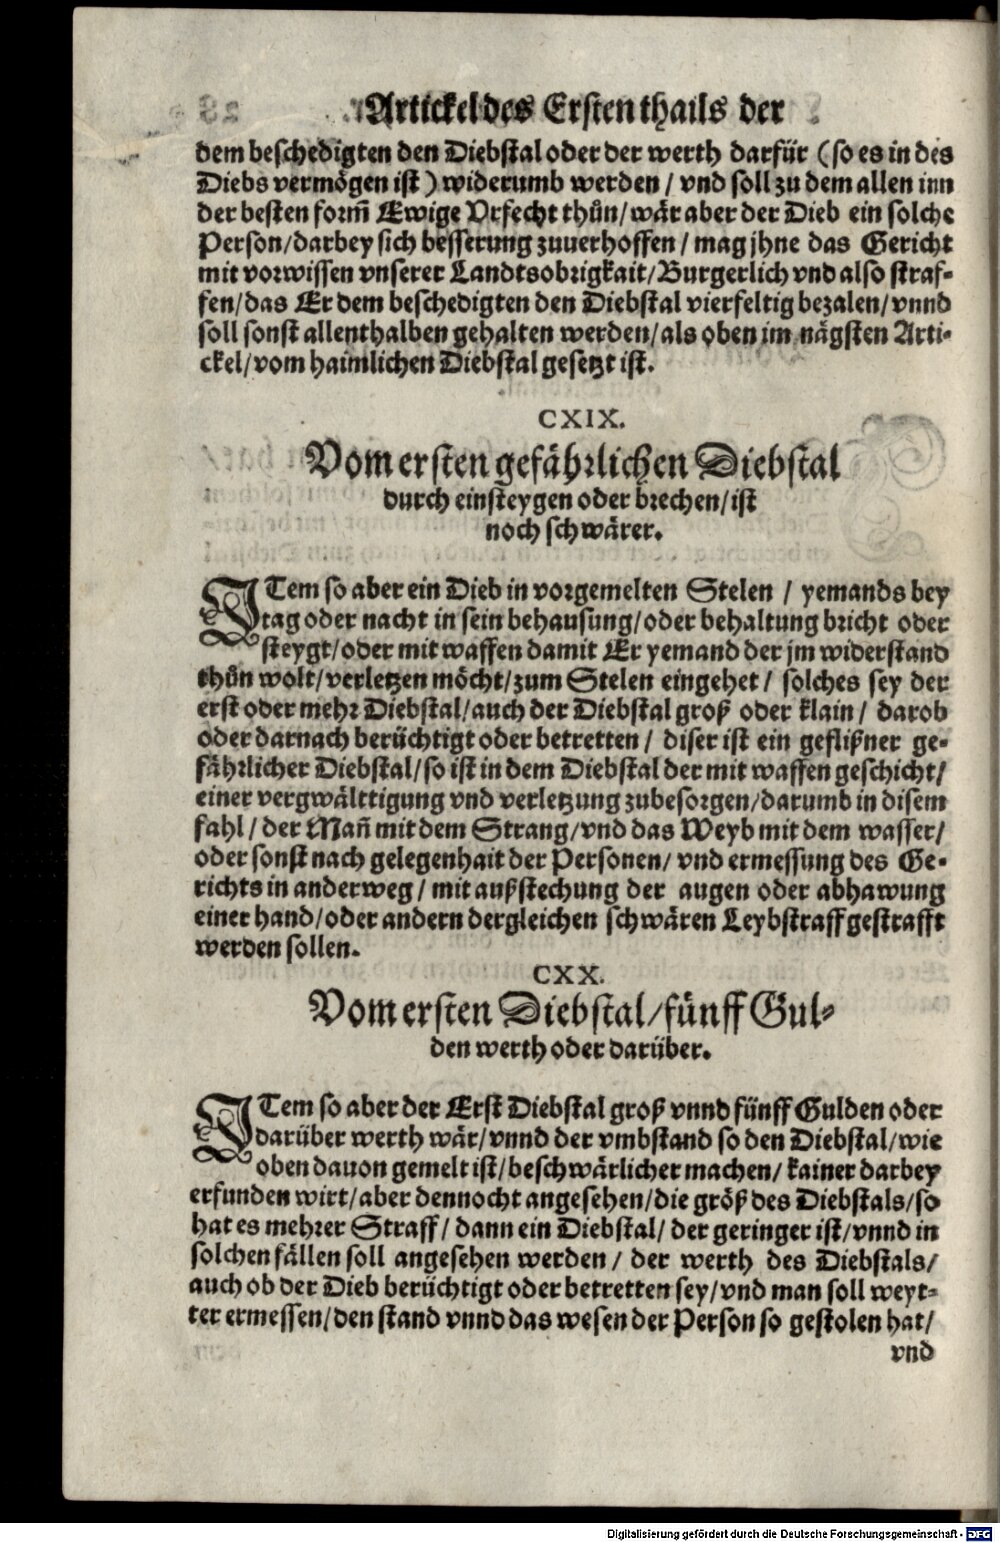 Artickel des Ersten thails der
dem beschedigten den Diebstal oder der werth darfür (so es in des
Diebs vermögen ist) widerumb werden / vnd soll zu dem allen inn
der besten form̃ Ewige Vrfecht thůn / wär aber der Dieb ein solche
Person / darbey sich besserung zuuerhoffen / mag jhne das Gericht
mit vorwissen vnserer Landtsobrigkait / Burgerlich vnd also straf-
fen / das Er dem beschedigten den Diebstal vierfeltig bezalen / vnnd
soll sonst allenthalben gehalten werden / als oben im nägsten Arti-
ckel / vom haimlichen Diebstal gesetzt ist.
CXIX.
Vom ersten gefährlichen Diebstal
durch einsteygen oder brechen / ist
noch schwärer.
ITem so aber ein Dieb in vorgemelten Stelen / yemands bey
tag oder nacht in sein behausung / oder behaltung bricht oder
steygt / oder mit waffen damit Er yemand der jm widerstand
thůn wolt / verletzen möcht / zum Stelen eingehet / solches sey der
erst oder mehr Diebstal / auch der Diebstal groß oder klain / darob
oder darnach berüchtigt oder betretten / diser ist ein geflißner ge-
fährlicher Diebstal / so ist in dem Diebstal der mit waffen geschicht /
einer vergwälttigung vnd verletzung zubesorgen / darumb in disem
fahl / der Mañ mit dem Strang / vnd das Weyb mit dem wasser /
oder sonst nach gelegenhait der Personen / vnd ermessung des Ge-
richts in ander weg / mit außstechung der augen oder abhawung
einer hand / oder andern dergleichen schwären Leybstraff gestrafft
werden sollen.
CXX.
Vom ersten Diebstal / fünff Gul-
den werth oder darüber.
ITem so aber der Erst Diebstal groß vnnd fünff Gulden oder
darüber werth wär / vnnd der vmbstand so den Diebstal / wie
oben dauon gemelt ist / beschwärlicher machen / kainer darbey
erfunden wirt / aber dennocht angesehen / die größ des Diebstals / so
hat es mehrer Straff / dann ein Diebstal / der geringer ist / vnnd in
solchen fällen soll angesehen werden / der werth des Diebstals /
auch ob der Dieb berüchtigt oder betretten sey / vnd man soll weyt-
ter ermessen / den stand vnnd das wesen der Person so gestolen hat /
vnd
Digitalisierung gefördert durch die Deutsche Forschungsgemeinschaft - DFG